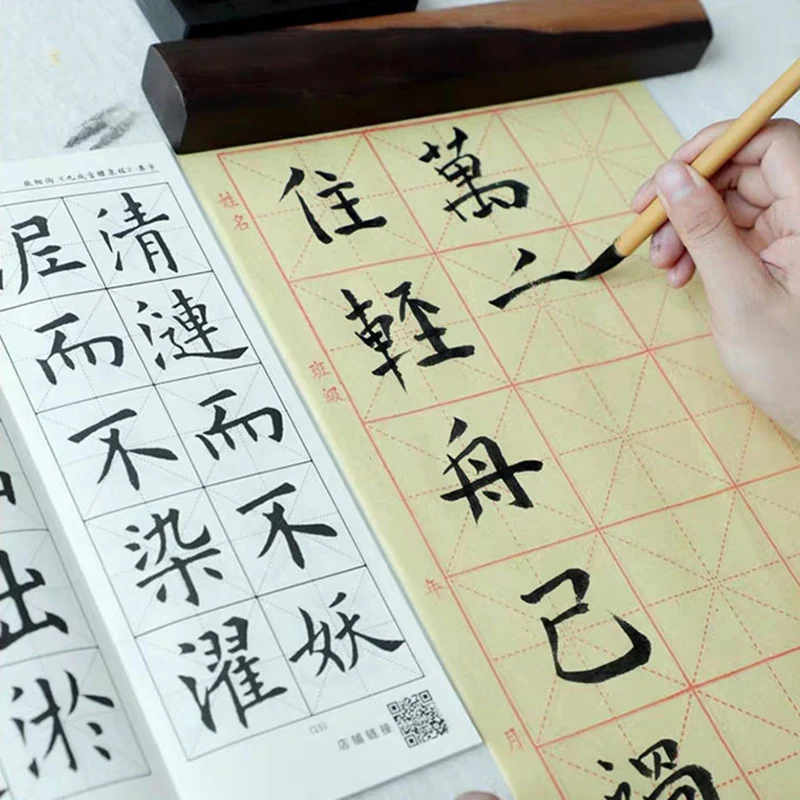 萬
住輕舟已過
姓名
班級
年
月
欧陽詢《九成宮醴泉銘》集字
清漣而不妖
泥而不染濯
出淤
店鋪鏈接